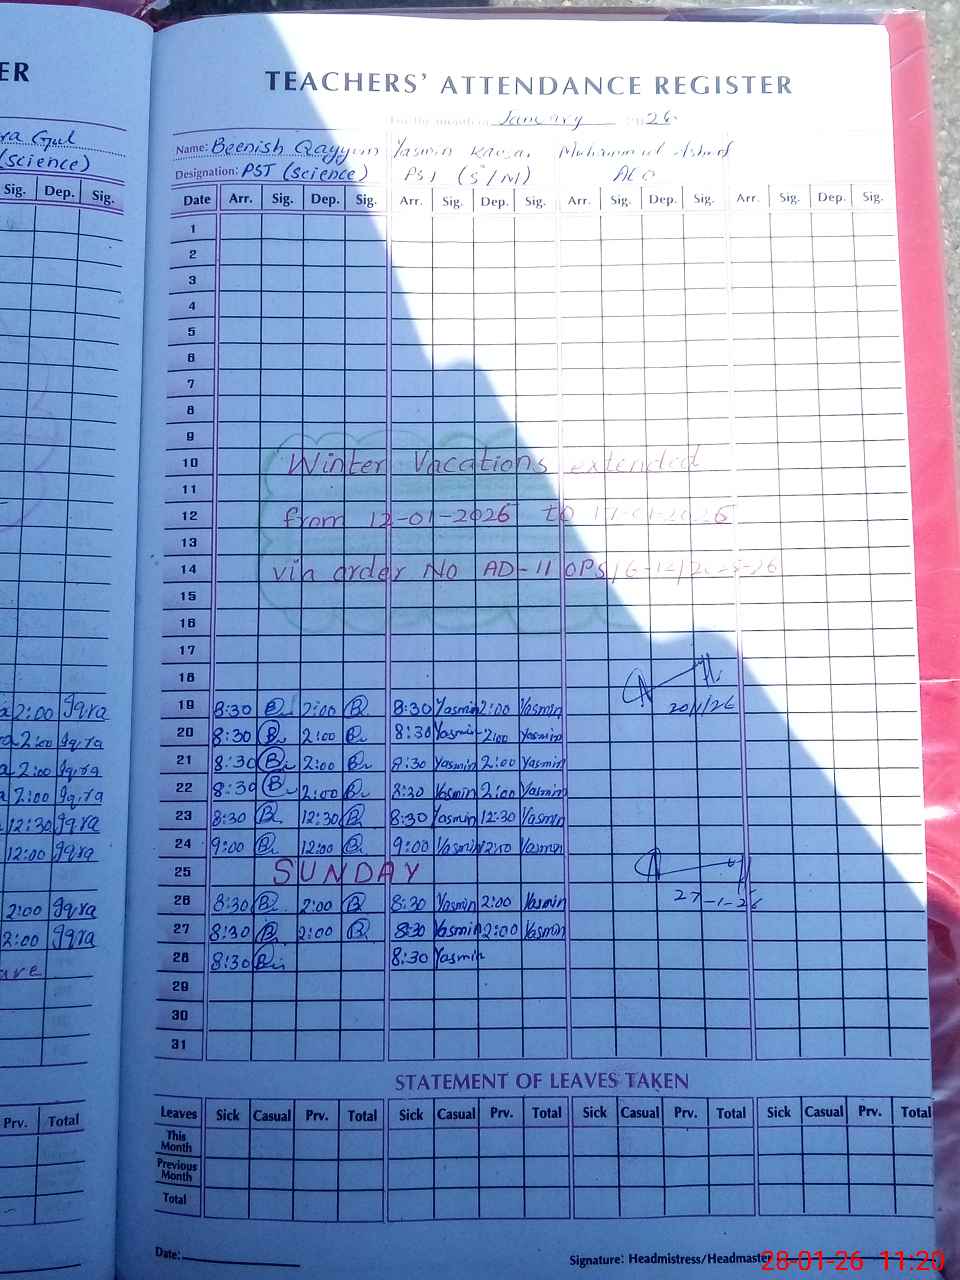 ER
TEACHERS' ATTENDANCE REGISTER
For the month of January 2026
Gul
(science)
Sig. Dep. Sig.
Name: Beenish Qayyum Yasmin Muhammad Ashraf
Designation: PST (Science) PST (S/N)
Date Arr. Sig. Dep. Sig. Arr. Sig. Dep. Sig. Arr. Sig. Dep. Sig. Arr. Sig. Dep. Sig.
1
2
3
4
5
6
7
8
9
10 Winter Vacations extended
11
12 from 12-01-2026 to 17-01-2026
13
14 via order No AD-11
15
16
17
18
2:00 Iqra 19 8:30 2:00 8:30 Yasmin 2:00 Yasmin 20/1/26
2:00 Iqra 20 8:30 2:00 8:30 Yasmin 2:00 Yasmin
2:00 Iqra 21 8:30 2:00 8:30 Yasmin 2:00 Yasmin
2:00 Iqra 22 8:30 2:00 8:30 Yasmin 2:00 Yasmin
12:30 Iqra 23 8:30 12:30 8:30 Yasmin 12:30 Yasmin
12:00 Iqra 24 9:00 12:00 9:00 Yasmin Yasmin
25 SUNDAY
2:00 Iqra 26 8:30 2:00 8:30 Yasmin 2:00 Yasmin 27-1-26
2:00 Iqra 27 8:30 2:00 8:30 Yasmin 2:00 Yasmin
28 8:30 8:30 Yasmin
29
30
31
STATEMENT OF LEAVES TAKEN
Prv. Total
Leaves Sick Casual Prv. Total Sick Casual Prv. Total Sick Casual Prv. Total Sick Casual Prv. Total
This Month
Previous Month
Total
Date:
Signature: Headmistress/Headmaster
28-01-26 11:20